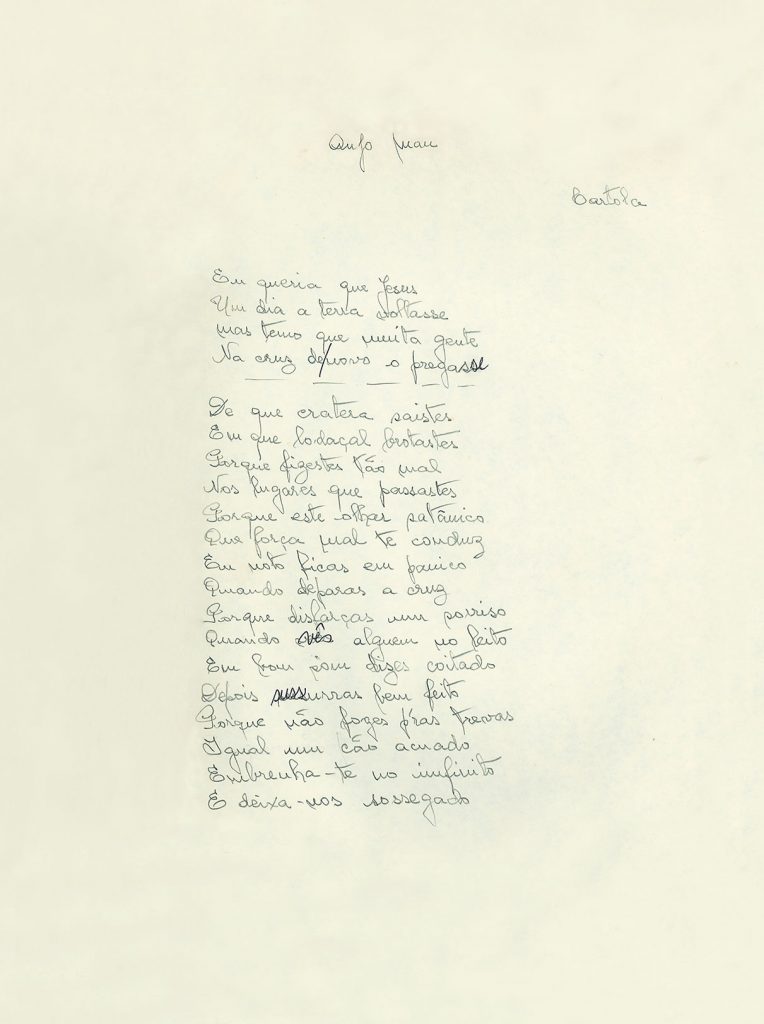 Anjo mau
Cartola
Eu queria que Jesus
Um dia a terra voltasse
mas temo que muita gente
Na cruz de/novo o pregasse
De que cratera saistes
Em que lodaçal brotastes
Porque fizestes tão mal
Nos lugares que passastes
Porque este olhar satânico
Que força mal te conduz
Eu noto ficas em panico
Quando deparas a cruz
Porque disfarças num sorriso
Quando vês alguem no leito
Em bom som dizes coitado
Depois sussurras bem feito
Porque não foges p'ras trevas
Igual um cão acuado
Embrenha-te no infinito
E deixa-nos sossegado